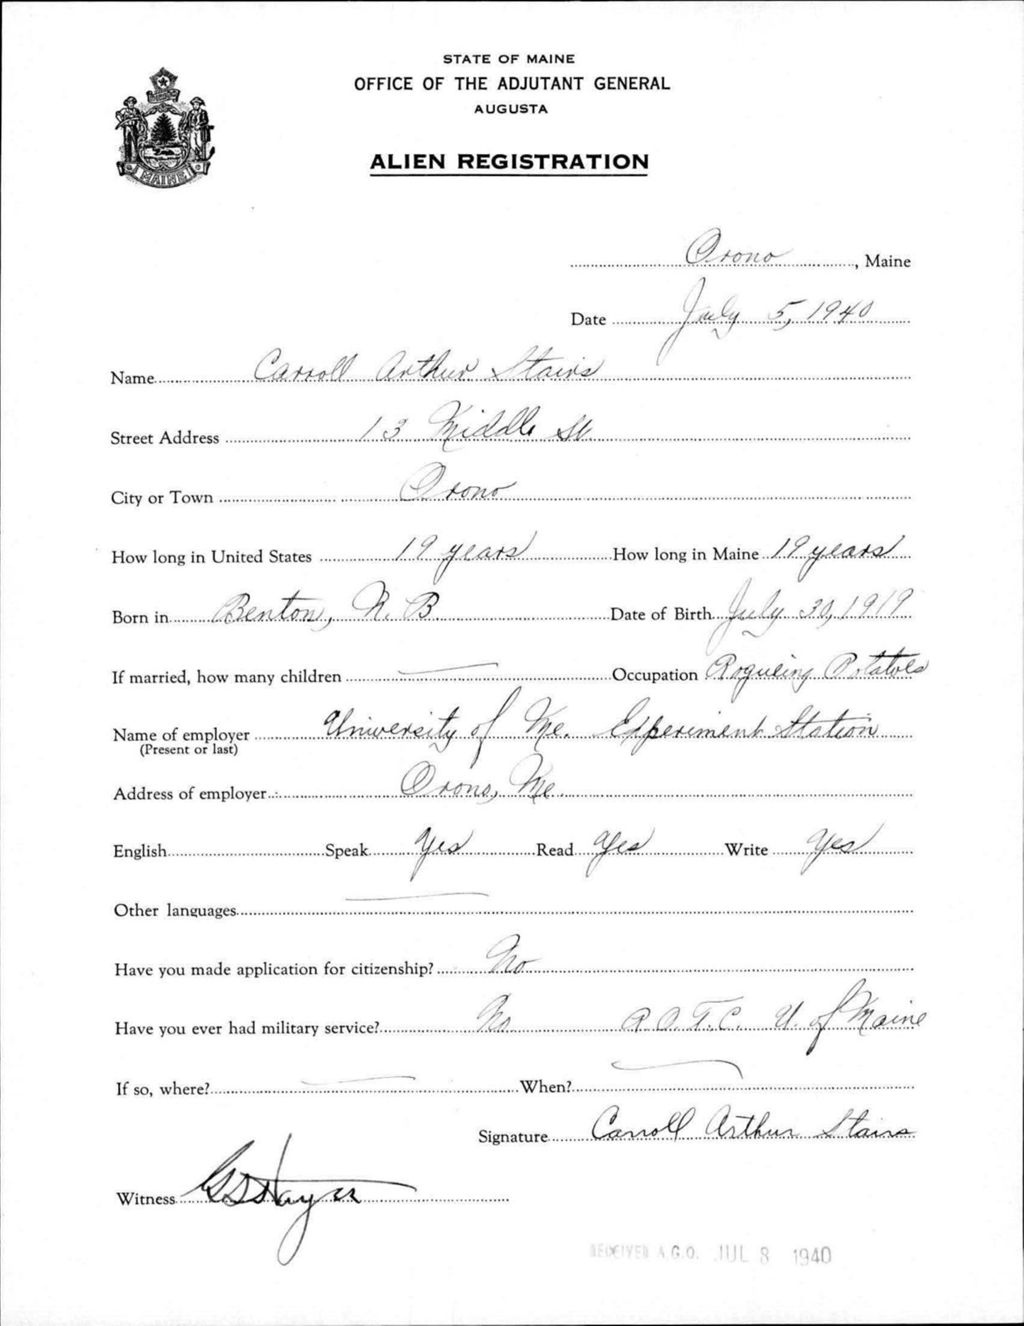 STATE OF MAINE
OFFICE OF THE ADJUTANT GENERAL
AUGUSTA
ALIEN REGISTRATION
MAINE
Orono, Maine
Date July 5, 1940
Name Carroll Arthur Stairs
Street Address 13 Middle St.
City or Town Orono
How long in United States 19 years How long in Maine 19 years
Born in Benton, N. B. Date of Birth July 30, 1919
If married, how many children — Occupation Rogueing Potatoes
Name of employer University of Me. Experiment Station
(Present or last)
Address of employer Orono, Me.
English Speak Yes Read Yes Write Yes
Other languages —
Have you made application for citizenship? No
Have you ever had military service? No R.O.T.C. U. of Maine
If so, where? — When? —
Signature Carroll Arthur Stairs
Witness
RECEIVED A.G.O. JUL 8 1940